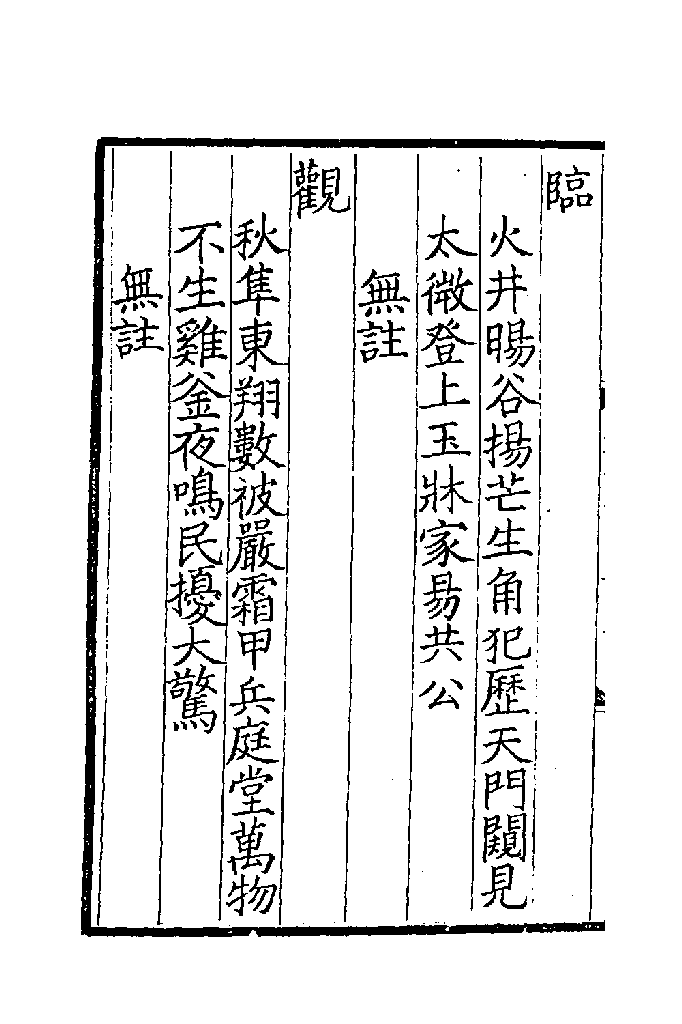 臨
火井暘谷揚芒生角犯歷天門闚見
太微登上玉牀家易共公
無註
觀
秋隼東翔數被嚴霜甲兵庭堂萬物
不生雞釜夜鳴民擾大驚
無註